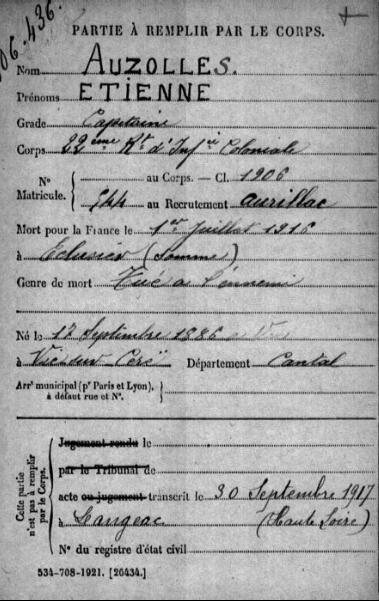 106.436.
PARTIE À REMPLIR PAR LE CORPS.
Nom AUZOLLES.
Prénoms ETIENNE
Grade Capitaine
Corps 22ème Rt d'Infie Coloniale
Nº Matricule. { au Corps. — Cl. 1906
944 au Recrutement Aurillac
Mort pour la France le 1er Juillet 1916
à Eclusier (Somme)
Genre de mort Tué à l'ennemi
Né le 17 Septembre 1886
à Vic sur Cère Département Cantal
Arrt municipal (pr Paris et Lyon), à défaut rue et Nº. }
Cette partie n'est pas à remplir par le Corps.
Jugement rendu le
par le Tribunal de
acte ou jugement transcrit le 30 Septembre 1917
à Langeac (Haute Loire)
Nº du registre d'état civil
534-708-1921. [26434.]